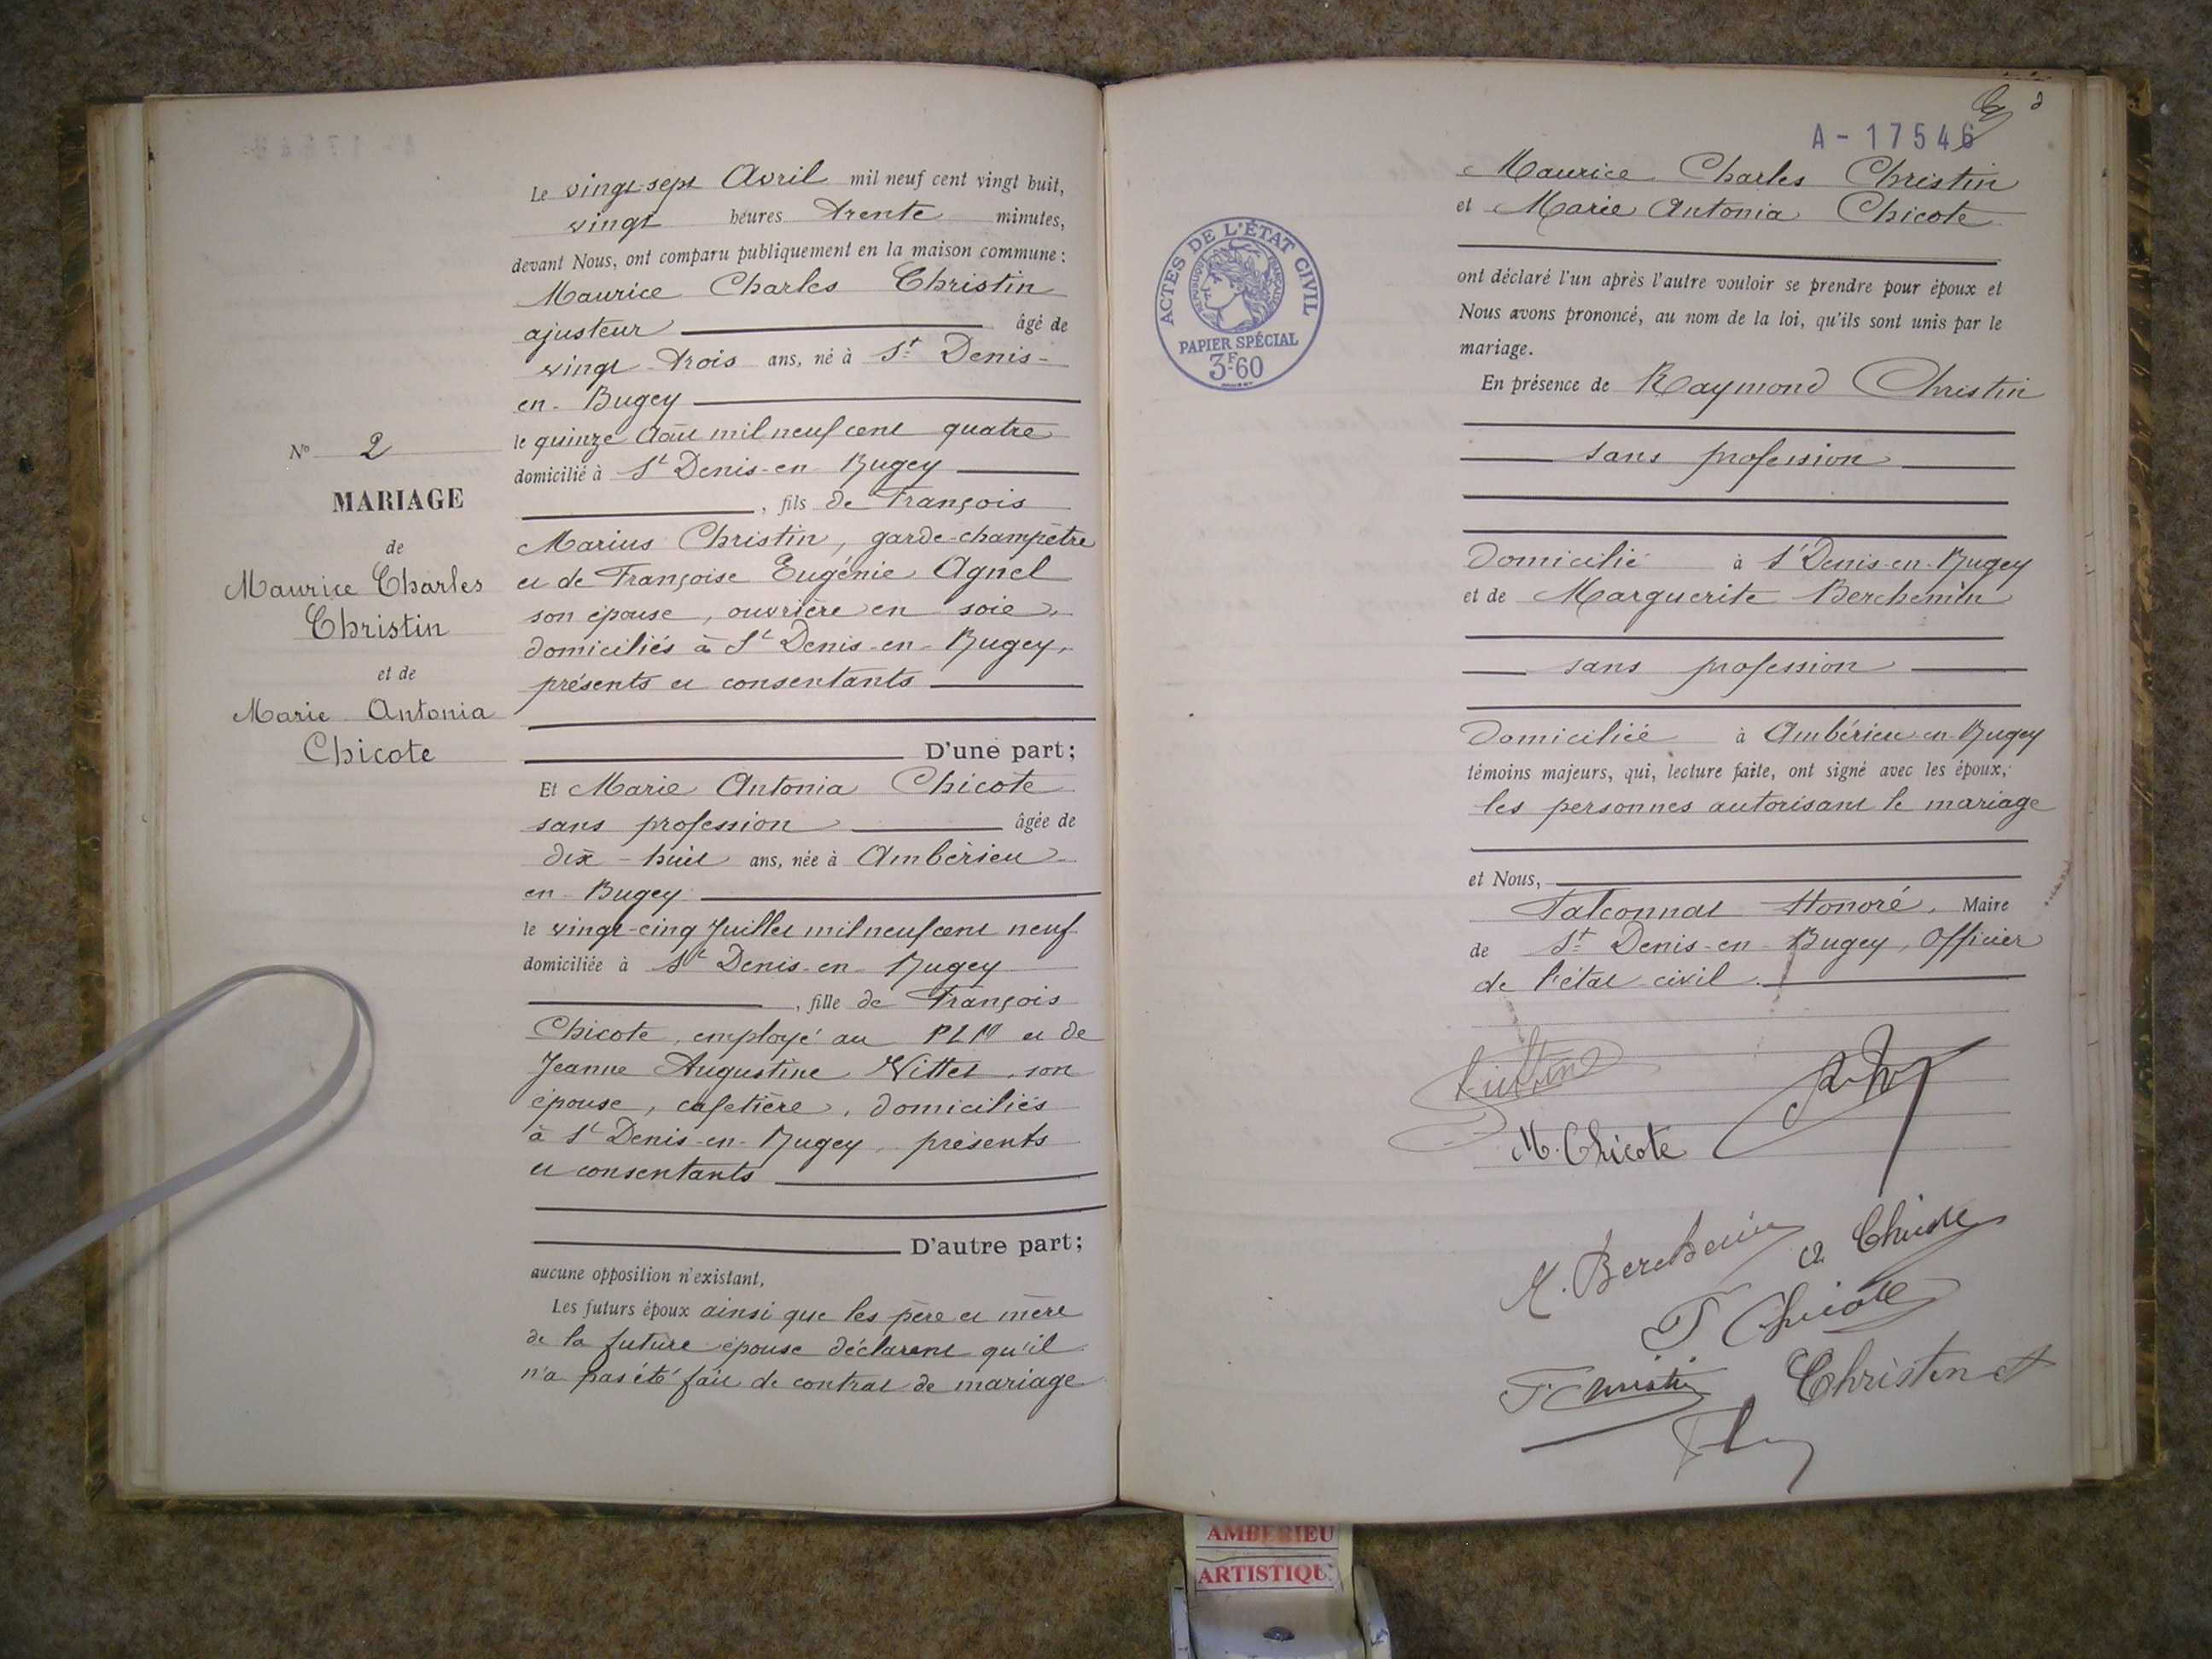 Nº 2
MARIAGE
de
Maurice Charles
Christin
et de
Marie Antonia
Chicote
Le vingt-sept Avril mil neuf cent vingt huit,
vingt heures trente minutes,
devant Nous, ont comparu publiquement en la maison commune :
Maurice Charles Christin
ajusteur âgé de
vingt-trois ans, né à St Denis-
en-Bugey
le quinze Août mil neuf cent quatre
domicilié à St Denis-en-Bugey
, fils de François
Marius Christin, garde-champêtre
et de Françoise Eugénie Agnel
son épouse, ouvrière en soie,
domiciliés à St Denis-en-Bugey,
présents et consentants
D'une part;
Et Marie Antonia Chicote
sans profession âgée de
dix-huit ans, née à Ambérieu-
en-Bugey
le vingt-cinq Juillet mil neuf cent neuf
domiciliée à St Denis-en-Bugey
, fille de François
Chicote, employé au PLM et de
Jeanne Augustine Vittet, son
épouse, cafetière, domiciliés
à St Denis-en-Bugey, présents
et consentants
D'autre part;
aucune opposition n'existant,
Les futurs époux ainsi que les père et mère
de la future épouse déclarent qu'il
n'a pas été fait de contrat de mariage
A-17546
ACTES DE L'ÉTAT CIVIL
RÉPUBLIQUE FRANÇAISE
PAPIER SPÉCIAL
3F60
Maurice Charles Christin
et Marie Antonia Chicote
ont déclaré l'un après l'autre vouloir se prendre pour époux et
Nous avons prononcé, au nom de la loi, qu'ils sont unis par le
mariage.
En présence de Raymond Christin
sans profession
domicilié à St Denis-en-Bugey
et de Marguerite Berchemin
sans profession
domiciliée à Ambérieu-en-Bugey
témoins majeurs, qui, lecture faite, ont signé avec les époux,
les personnes autorisant le mariage
et Nous,
Falconnat Honoré, Maire
de St Denis-en-Bugey, Officier
de l'état civil.
M. Chicote
M. Berchemin
a Chicote
F Chicote
F Christin
Christin
AMBERIEU
ARTISTIQUE